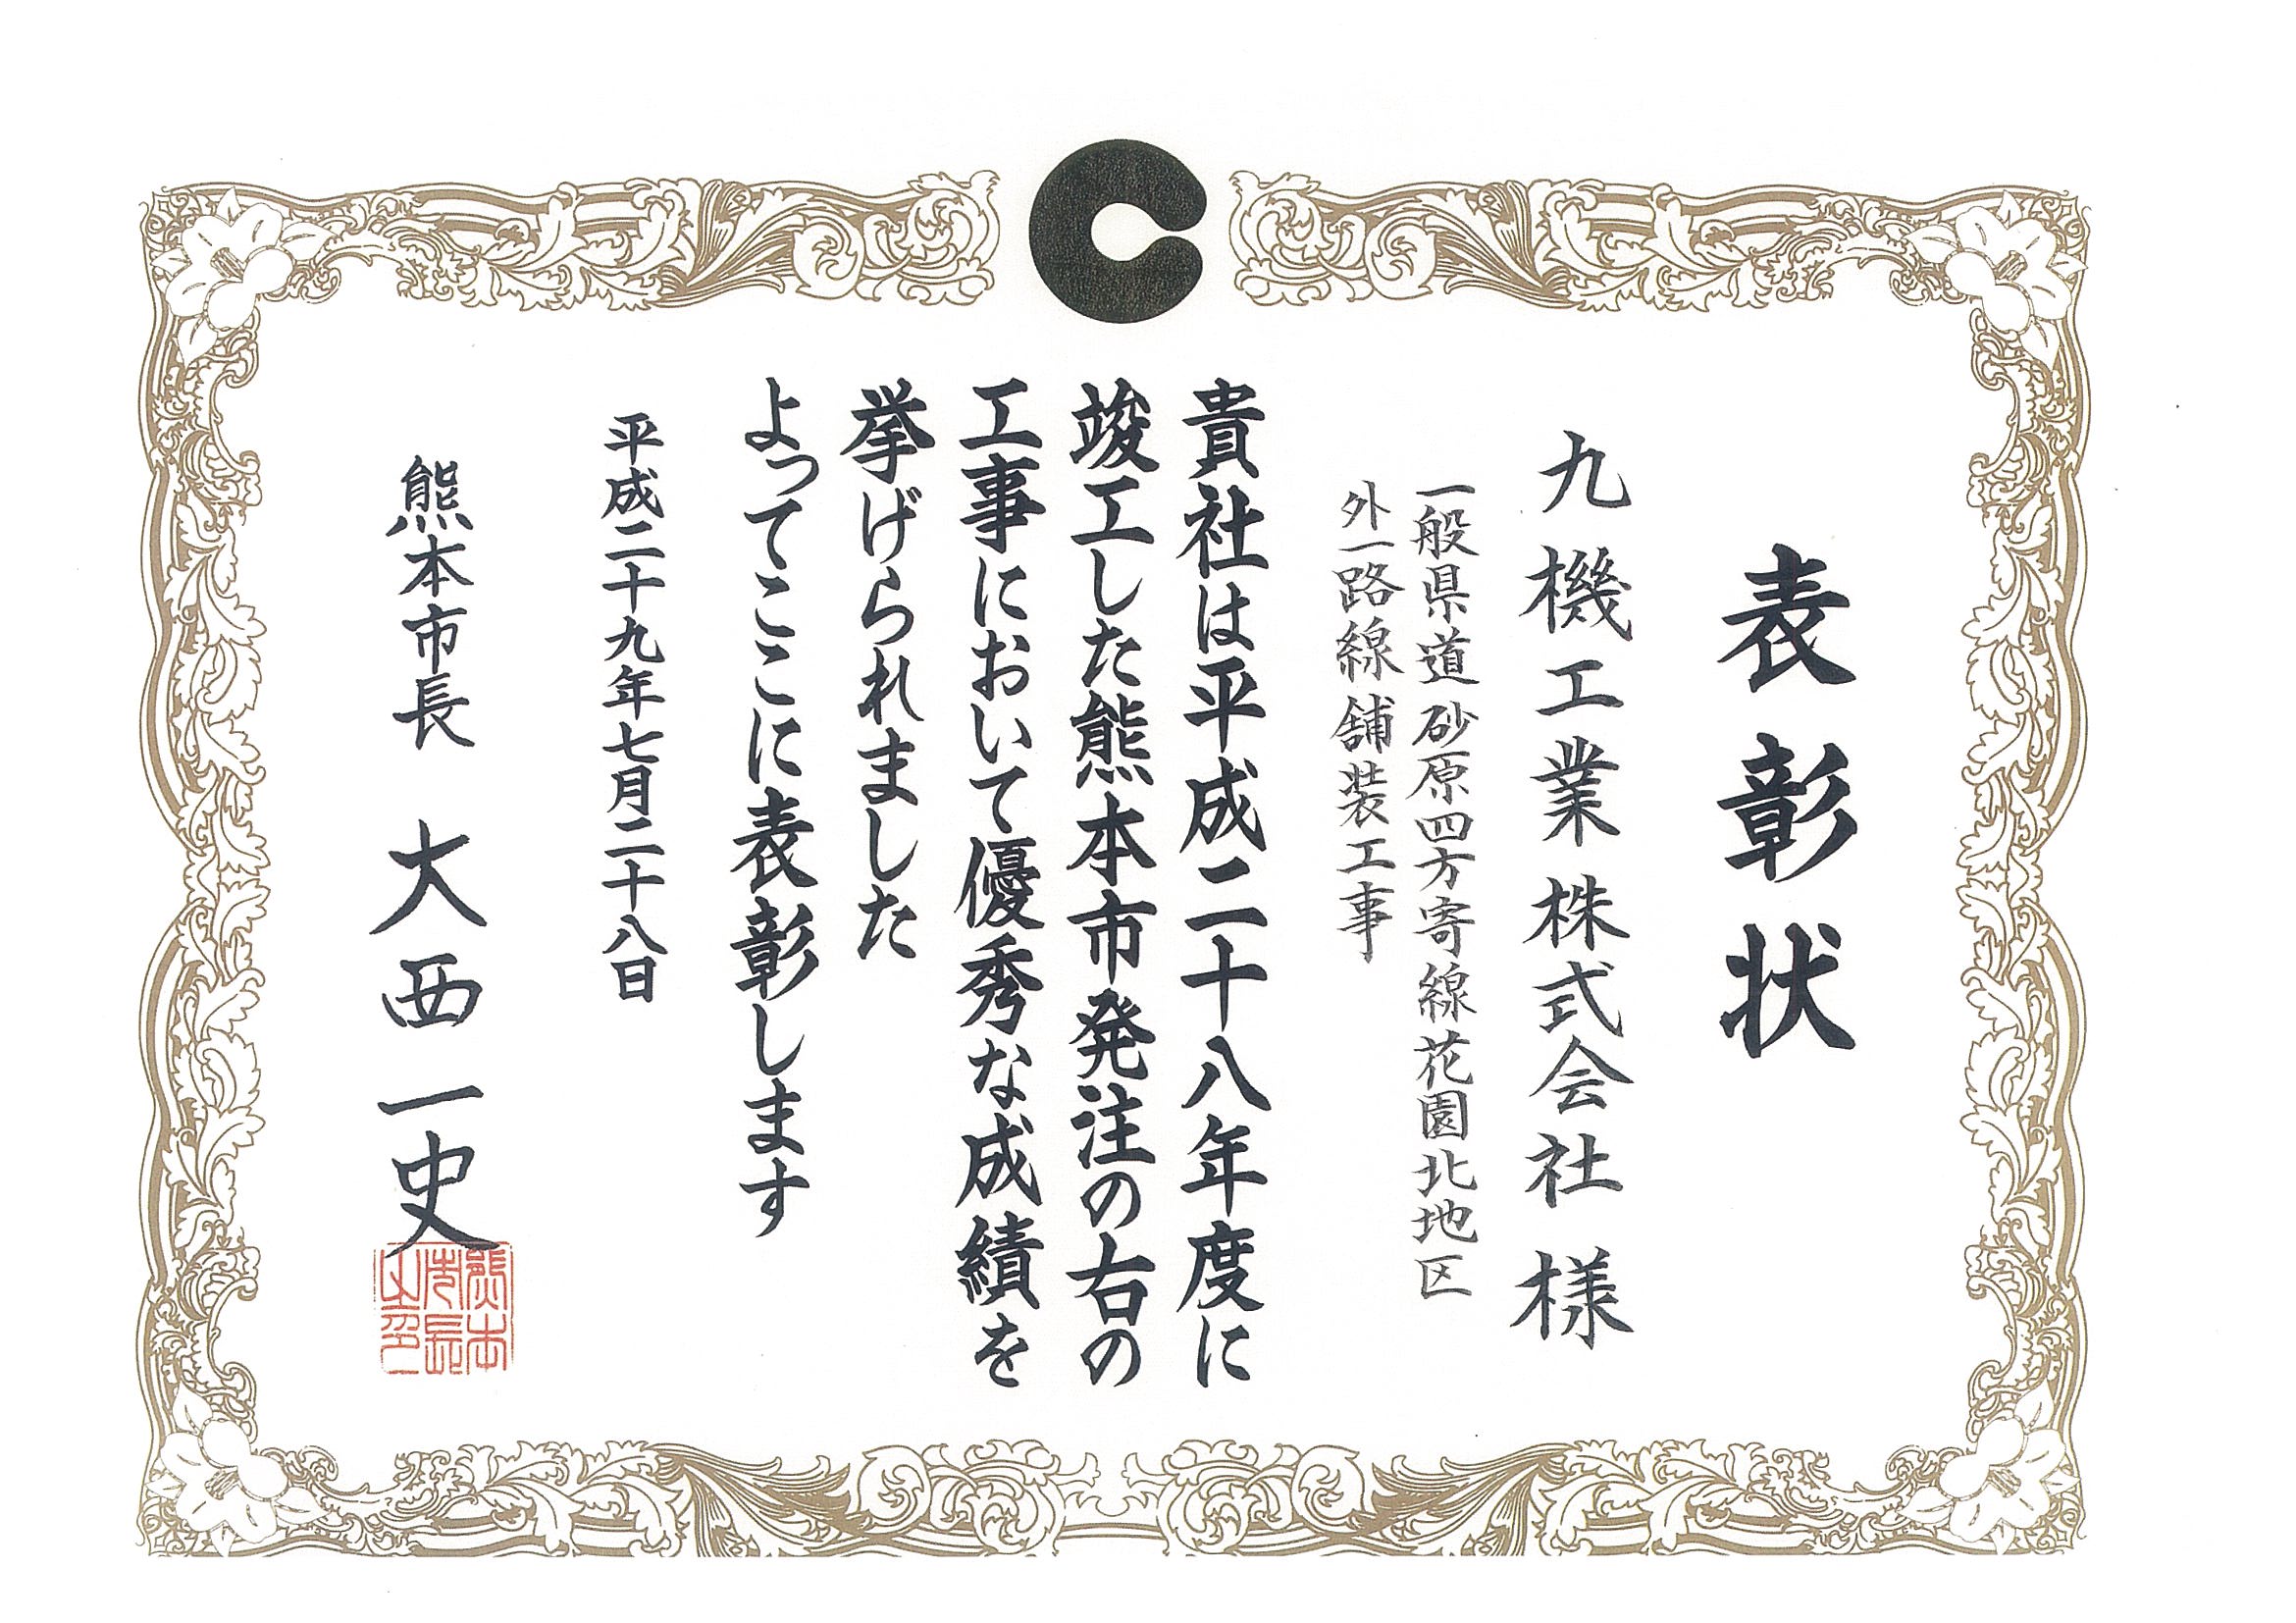 表彰状
九機工業株式会社 様
一般県道砂原四方寄線花園北地区
外一路線舗装工事
貴社は平成二十八年度に
竣工した熊本市発注の右の
工事において優秀な成績を
挙げられました
よってここに表彰します
平成二十九年七月二十八日
熊本市長 大西一史
熊本
市長
之印